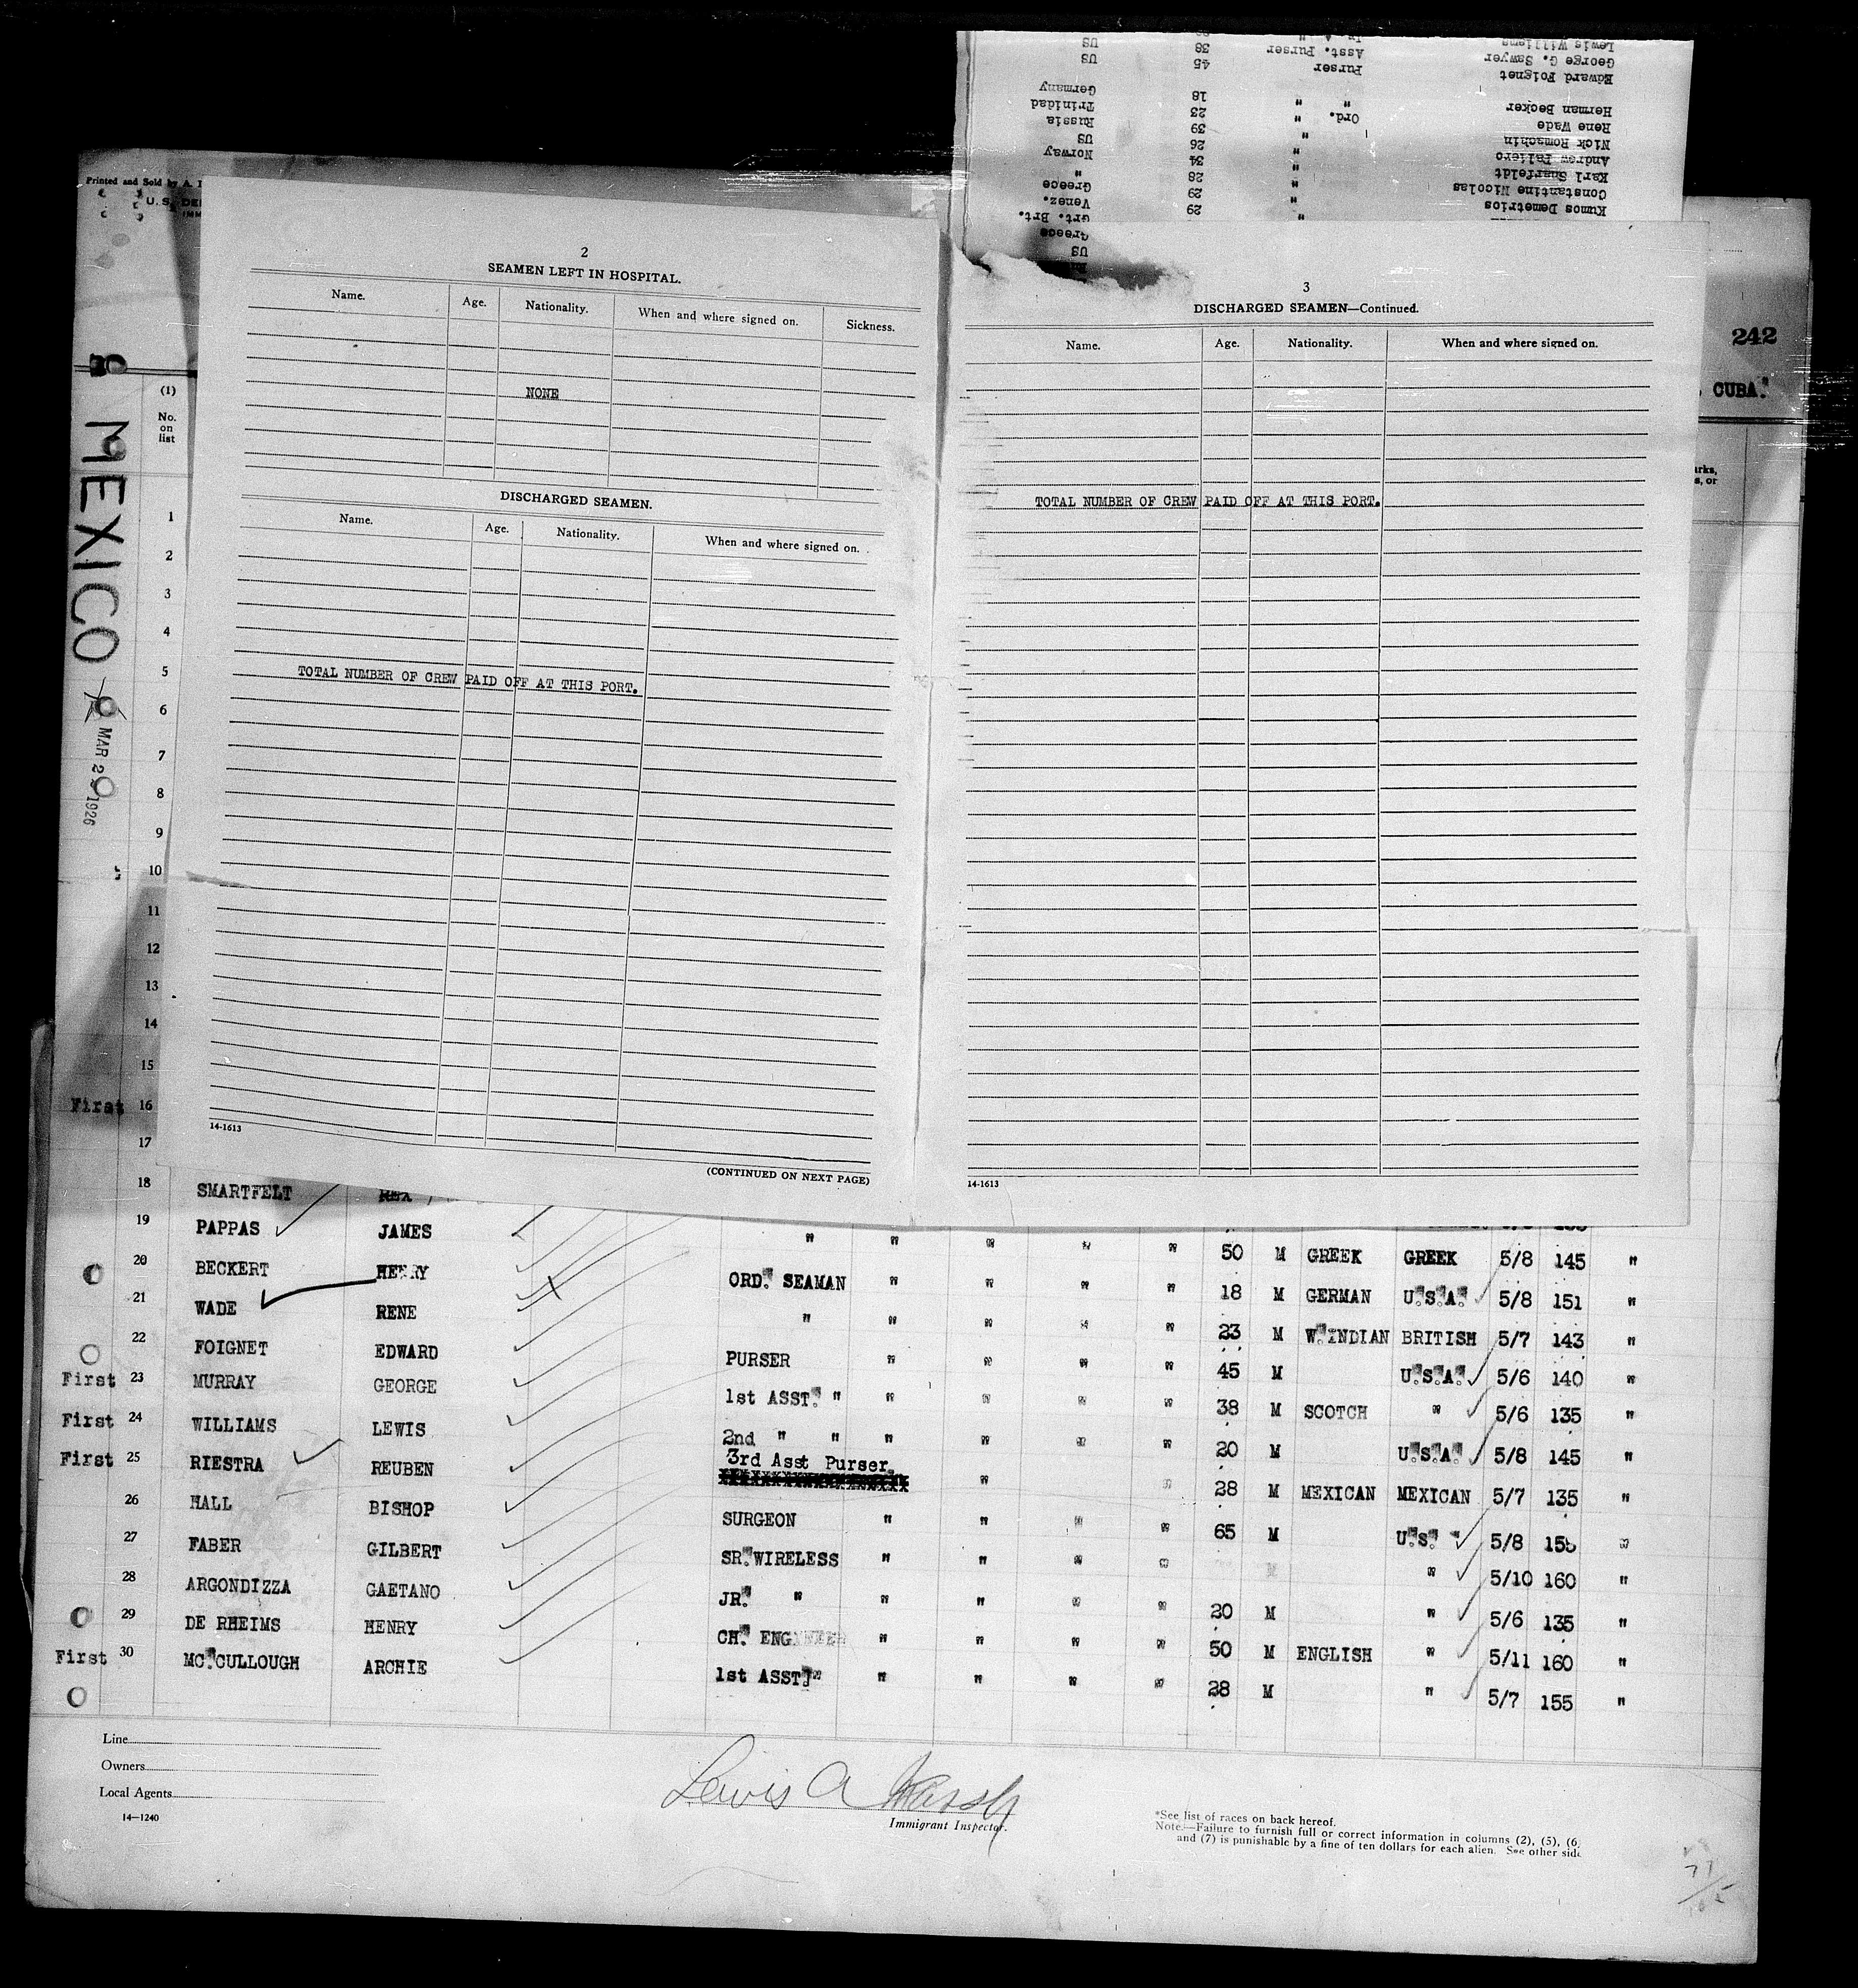 Lewis Williams
George G. Sawyer Asst. Purser 38 US
Edward Foignet Purser 45 US
Herman Becker " " 18 Germany
Rene Wade Ord. " 23 Trinidad
Nick Romaschin " 39 Russia
Andrew Paliero " 26 US
Karl Snarfeldt " 34 Norway
Constantine Nicolas " 28 "
Kumos Demetrios " 29 Greece
" 29 Venez.
Grt. Brt.
Greece
US
Printed and Sold by A.
U. S. DE
IMM
242
CUBA."
(1)
No.
on
list
MEXICO
MAR 29 1926
2
SEAMEN LEFT IN HOSPITAL.
Name. Age. Nationality. When and where signed on. Sickness.
NONE
DISCHARGED SEAMEN.
Name. Age. Nationality. When and where signed on.
TOTAL NUMBER OF CREW PAID OFF AT THIS PORT.
14-1613
(CONTINUED ON NEXT PAGE)
3
DISCHARGED SEAMEN—Continued.
Name. Age. Nationality. When and where signed on.
TOTAL NUMBER OF CREW PAID OFF AT THIS PORT.
14-1613
1
2
3
4
5
6
7
8
9
10
11
12
13
14
15
First 16
17
18 SMARTFELT REX
19 PAPPAS JAMES " " " " " 50 M GREEK GREEK 5/8 145 "
20 BECKERT HENRY ORD. SEAMAN " " " " 18 M GERMAN U.S.A. 5/8 151 "
21 WADE RENE " " " " " 23 M W.INDIAN BRITISH 5/7 143 "
22 FOIGNET EDWARD PURSER " " " " 45 M U.S.A. 5/6 140 "
First 23 MURRAY GEORGE 1st ASST. " " " " " 38 M SCOTCH " 5/6 135 "
First 24 WILLIAMS LEWIS 2nd " " " " " " 20 M U.S.A. 5/8 145 "
First 25 RIESTRA REUBEN 3rd Asst Purser " " " 28 M MEXICAN MEXICAN 5/7 135 "
26 HALL BISHOP SURGEON " " " " 65 M U.S. " 5/8 155 "
27 FABER GILBERT SR.WIRELESS " " " " M " 5/10 160 "
28 ARGONDIZZA GAETANO JR. " " " " " 20 M " 5/6 135 "
29 DE RHEIMS HENRY CH. ENGINEER " " " " 50 M ENGLISH " 5/11 160 "
First 30 MC.CULLOUGH ARCHIE 1st ASST." " " " " 28 M " 5/7 155 "
Line
Owners
Local Agents
14—1240
Lewis A Marsh
Immigrant Inspector.
*See list of races on back hereof.
Note.—Failure to furnish full or correct information in columns (2), (5), (6)
and (7) is punishable by a fine of ten dollars for each alien. See other side